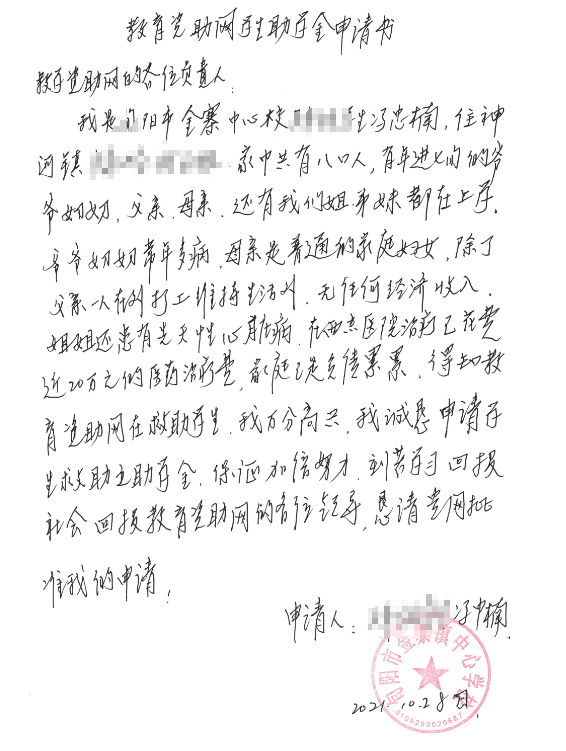 教育资助网学生助学金申请书
教育资助网的各位负责人:
我是旬阳市金寨中心校 学生冯忠楠,住神
河镇 家中共有八口人,有年进七旬的爷
爷奶奶、父亲、母亲、还有我们姐弟妹都在上学。
爷爷奶奶常年多病,母亲是普通的家庭妇女,除了
父亲一人在外打工维持生活外,无任何经济收入.
姐姐还患有先天性心脏病,在西京医院治疗已花费
近20万元的医药治疗费,家庭已是负债累累、得知教
育资助网在救助学生,我万分高兴,我诚恳申请学
生救助立助学金,保证加倍努力,刻苦学习回报
社会回报教育资助网的各位领导,恳请贵网批
准我的申请!
申请人: 冯忠楠
旬阳市金寨镇中心学校
2021.10.28日.
6109280020687